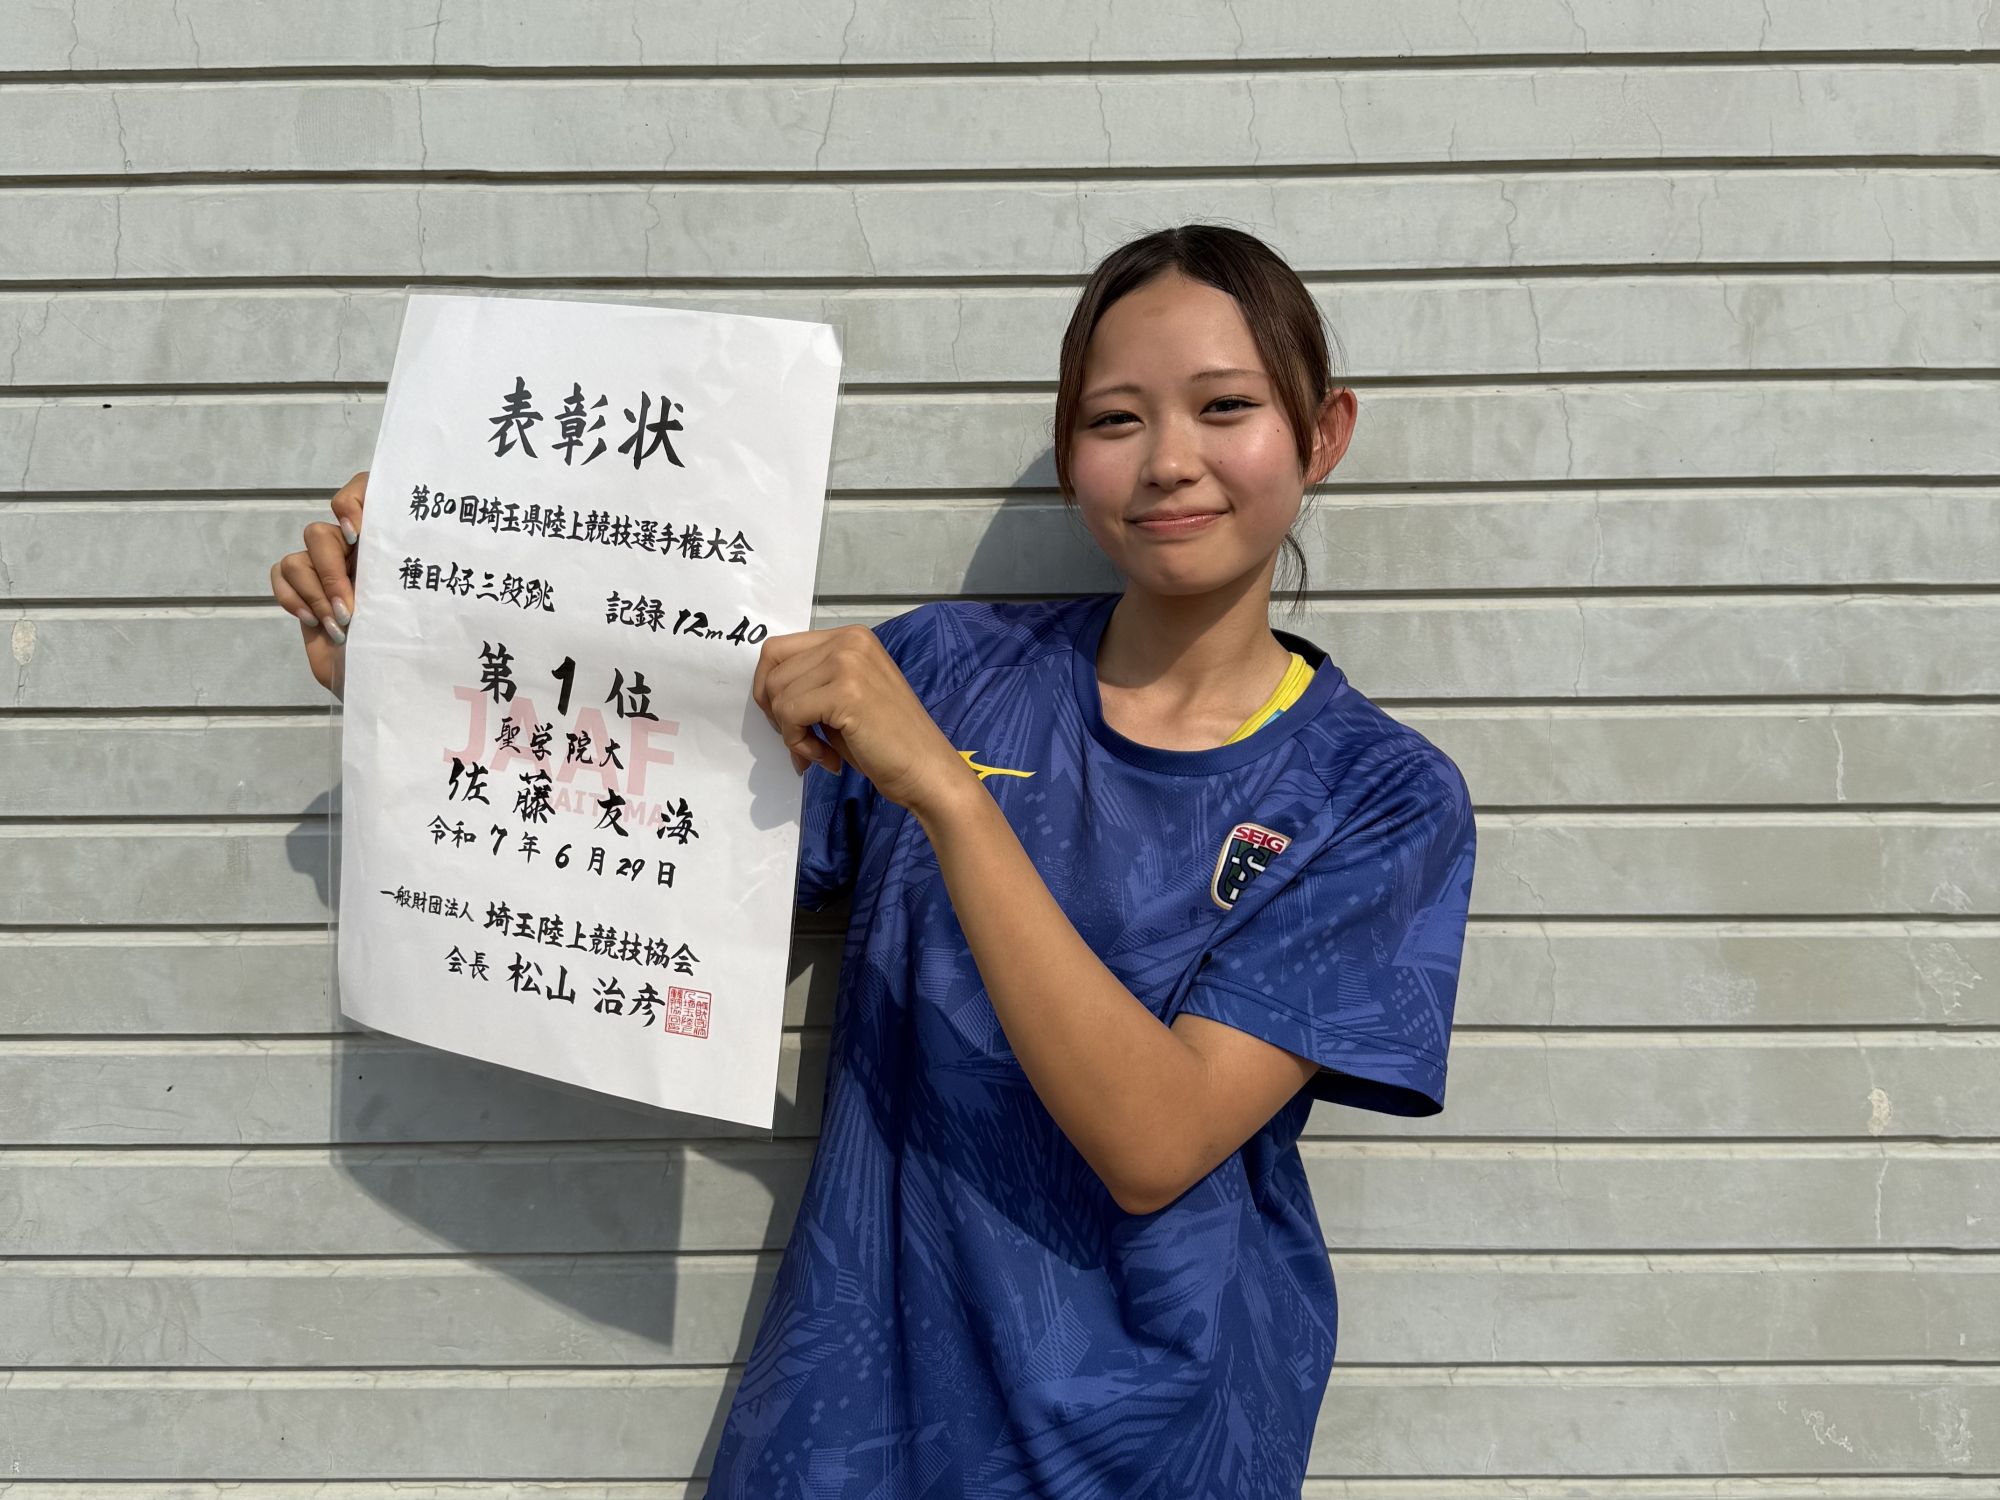 表彰状
第80回埼玉県陸上競技選手権大会
種目女子三段跳 記録12m40
第1位
聖学院大
佐藤友海
令和7年6月29日
一般財団法人 埼玉陸上競技協会
会長 松山治彦
JAAF
SEIG